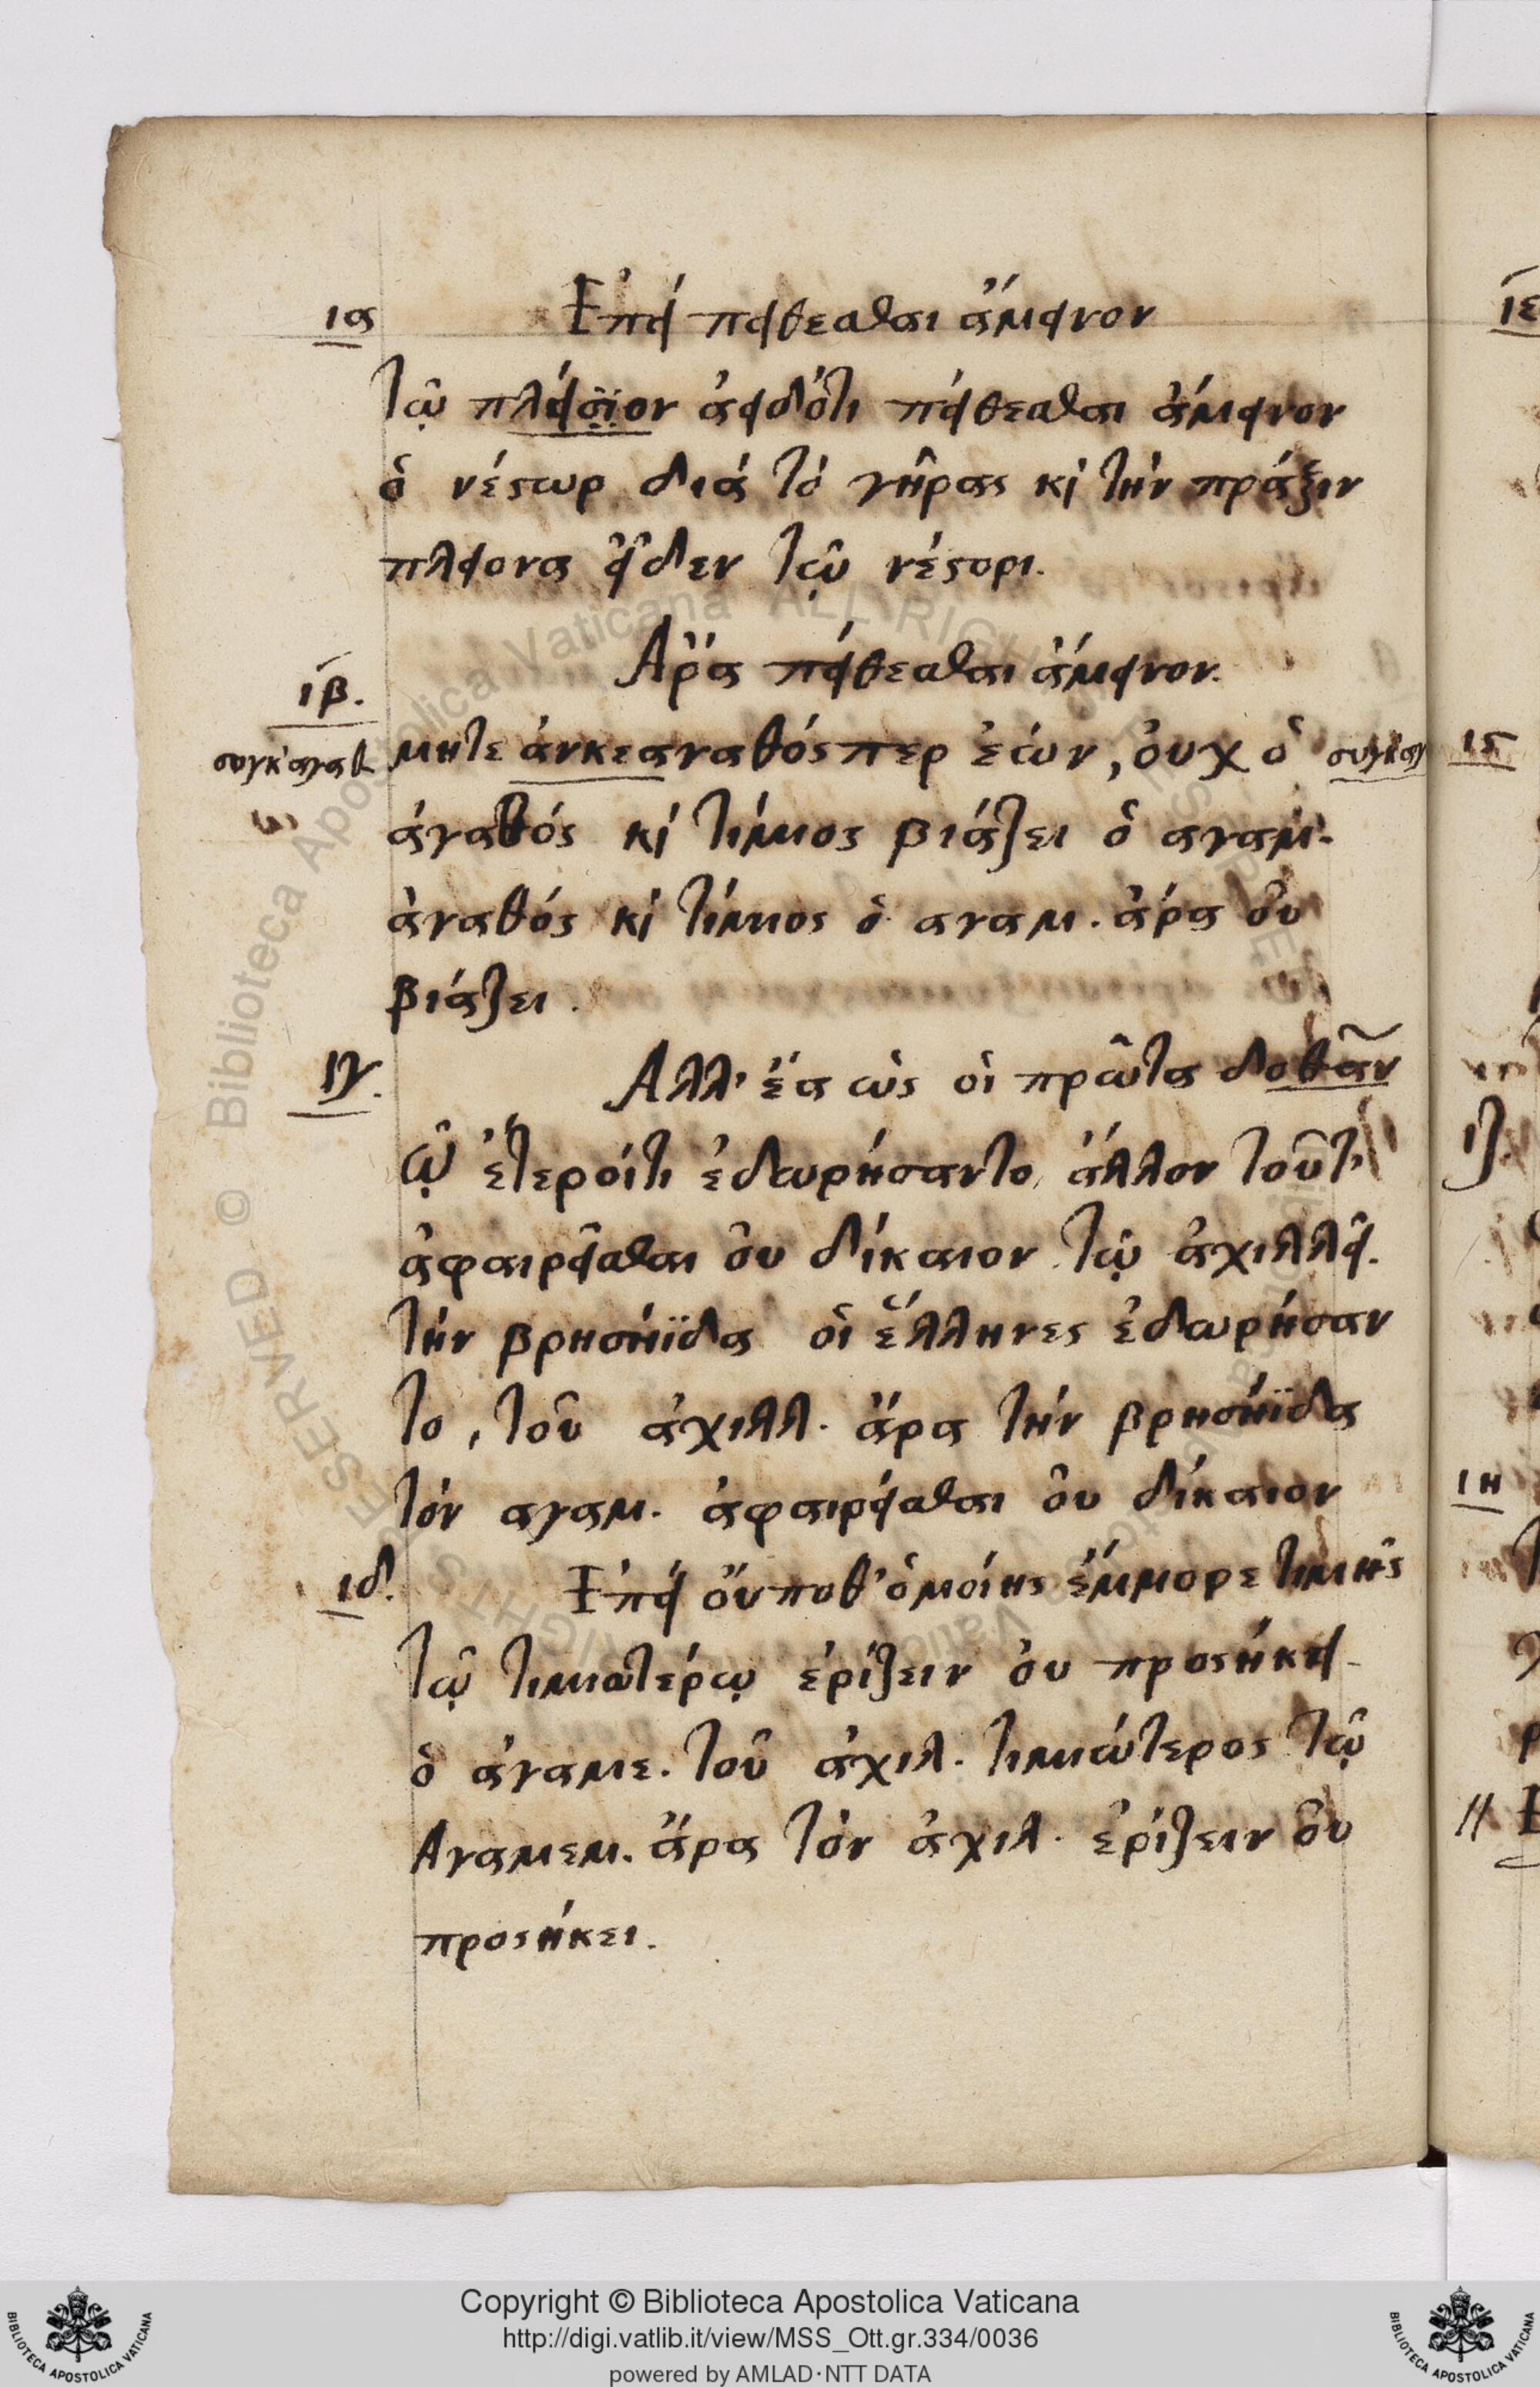 ια Ἐπεί πείθεσθαι ἄμεινον
τῷ πλείοϊον εἰδότι πείθεσθαι ἄμεινον
ὁ νέστωρ διά τό γῆρας κὶ τήν πράξιν
πλείονα οἶδεν τῷ νέστορι.
Ἄρα πείθεσθαι ἄμεινον.
ιβ.
συγκ'αγαθ μητε ἀνκεαγαθόςπερ ἐών, ὀυχ ὁ συγκαγ
ἀγαθός κί τίμιος βιάζει ὁ αγαμ.
ἀγαθός κί τίμιος ὁ αγαμ. ἄρα ὀυ
βιάζει.
ιγ. Αλλ' ἔα ὡς οἱ πρῶτα δοθᾶν
ᾧ ἕτεροίτι ἐδωρήσαντο, ἄλλον τοῦτ'
ἀφαιρεῖσθαι ὀυ δίκαιον τῷ ἀχιλλεῖ.
τήν βρησηΐδα οἱ ἕλληνες ἐδωρήσαν
το, τοῦ ἀχιλλ. ἄρα τήν βρησηΐδα
τόν αγαμ. ἀφαιρείσθαι ὀυ δίκαιον
ιδ. Ἐπεί ὄυποθ' ὁμοίης ἔμμορε τιμῆς
τῷ τιμιωτέρῳ ἐρίζειν ὀυ προςήκει.
ὁ ἀγαμε. τοῦ ἀχιλ. τιμιώτερος τῷ
Αγαμεμ. ἄρα τόν ἀχιλ. ἐρίζειν ὀυ
προςήκει.
ιε
ις
ιζ.
ιη
Copyright © Biblioteca Apostolica Vaticana
http://digi.vatlib.it/view/MSS_Ott.gr.334/0036
powered by AMLAD·NTT DATA
BIBLIOTECA APOSTOLICA VATICANA
BIBLIOTECA APOSTOLICA VATICANA